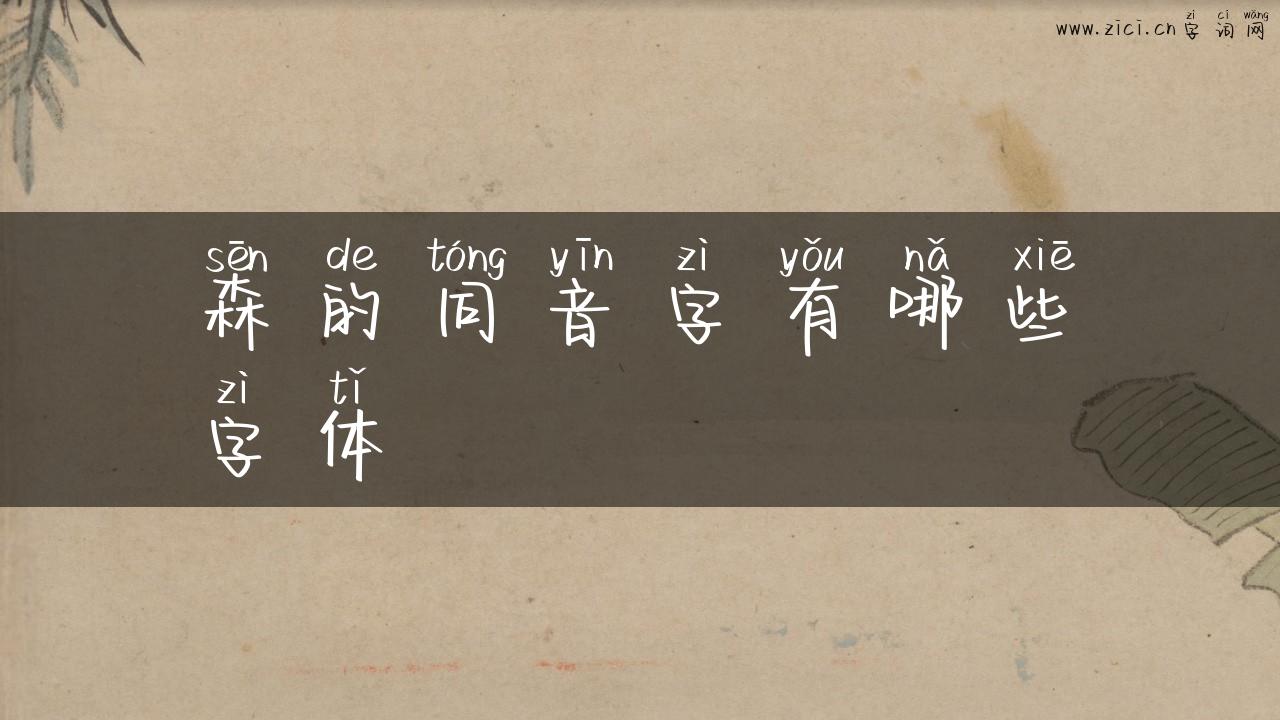 zì cí wǎng
www.zici.cn 字 词 网
sēn de tóng yīn zì yǒu nǎ xiē
森 的 同 音 字 有 哪 些
zì tǐ
字 体